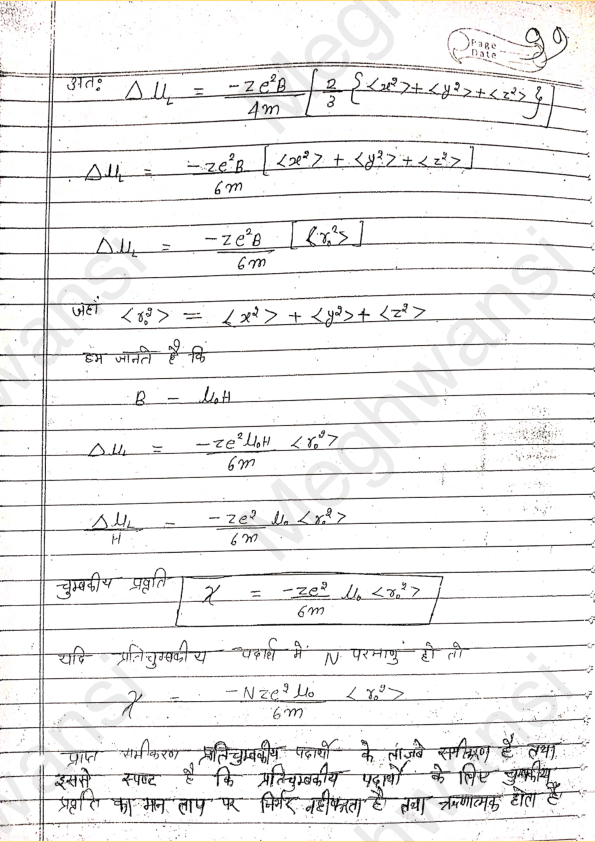 Page 99
Date
अतः Δμ_L = -ze²B/4m [2/3 {<x²>+<y²>+<z²>}]
Δμ_L = -ze²B/6m [<x²> + <y²> + <z²>]
Δμ_L = -ze²B/6m [<r₀²>]
जहाँ <r₀²> = <x²> + <y²> + <z²>
हम जानते है कि
B = μ₀H
Δμ_L = -ze²μ₀H/6m <r₀²>
Δμ_L/H = -ze²/6m μ₀ <r₀²>
चुम्बकीय प्रवृति χ = -ze²/6m μ₀ <r₀²>
यदि प्रतिचुम्बकीय पदार्थ में N परमाणुं हो तो
χ = -Nze²μ₀/6m <r₀²>
प्राप्त समीकरण प्रतिचुम्बकीय पदार्थों के लांजवे समीकरण है तथा
इससे स्पष्ट है कि प्रतिचुम्बकीय पदार्थों के लिए चुम्बकीय
प्रवृति का मान ताप पर निर्भर नहीं करता है तथा ऋणात्मक होता है
Meghwansi